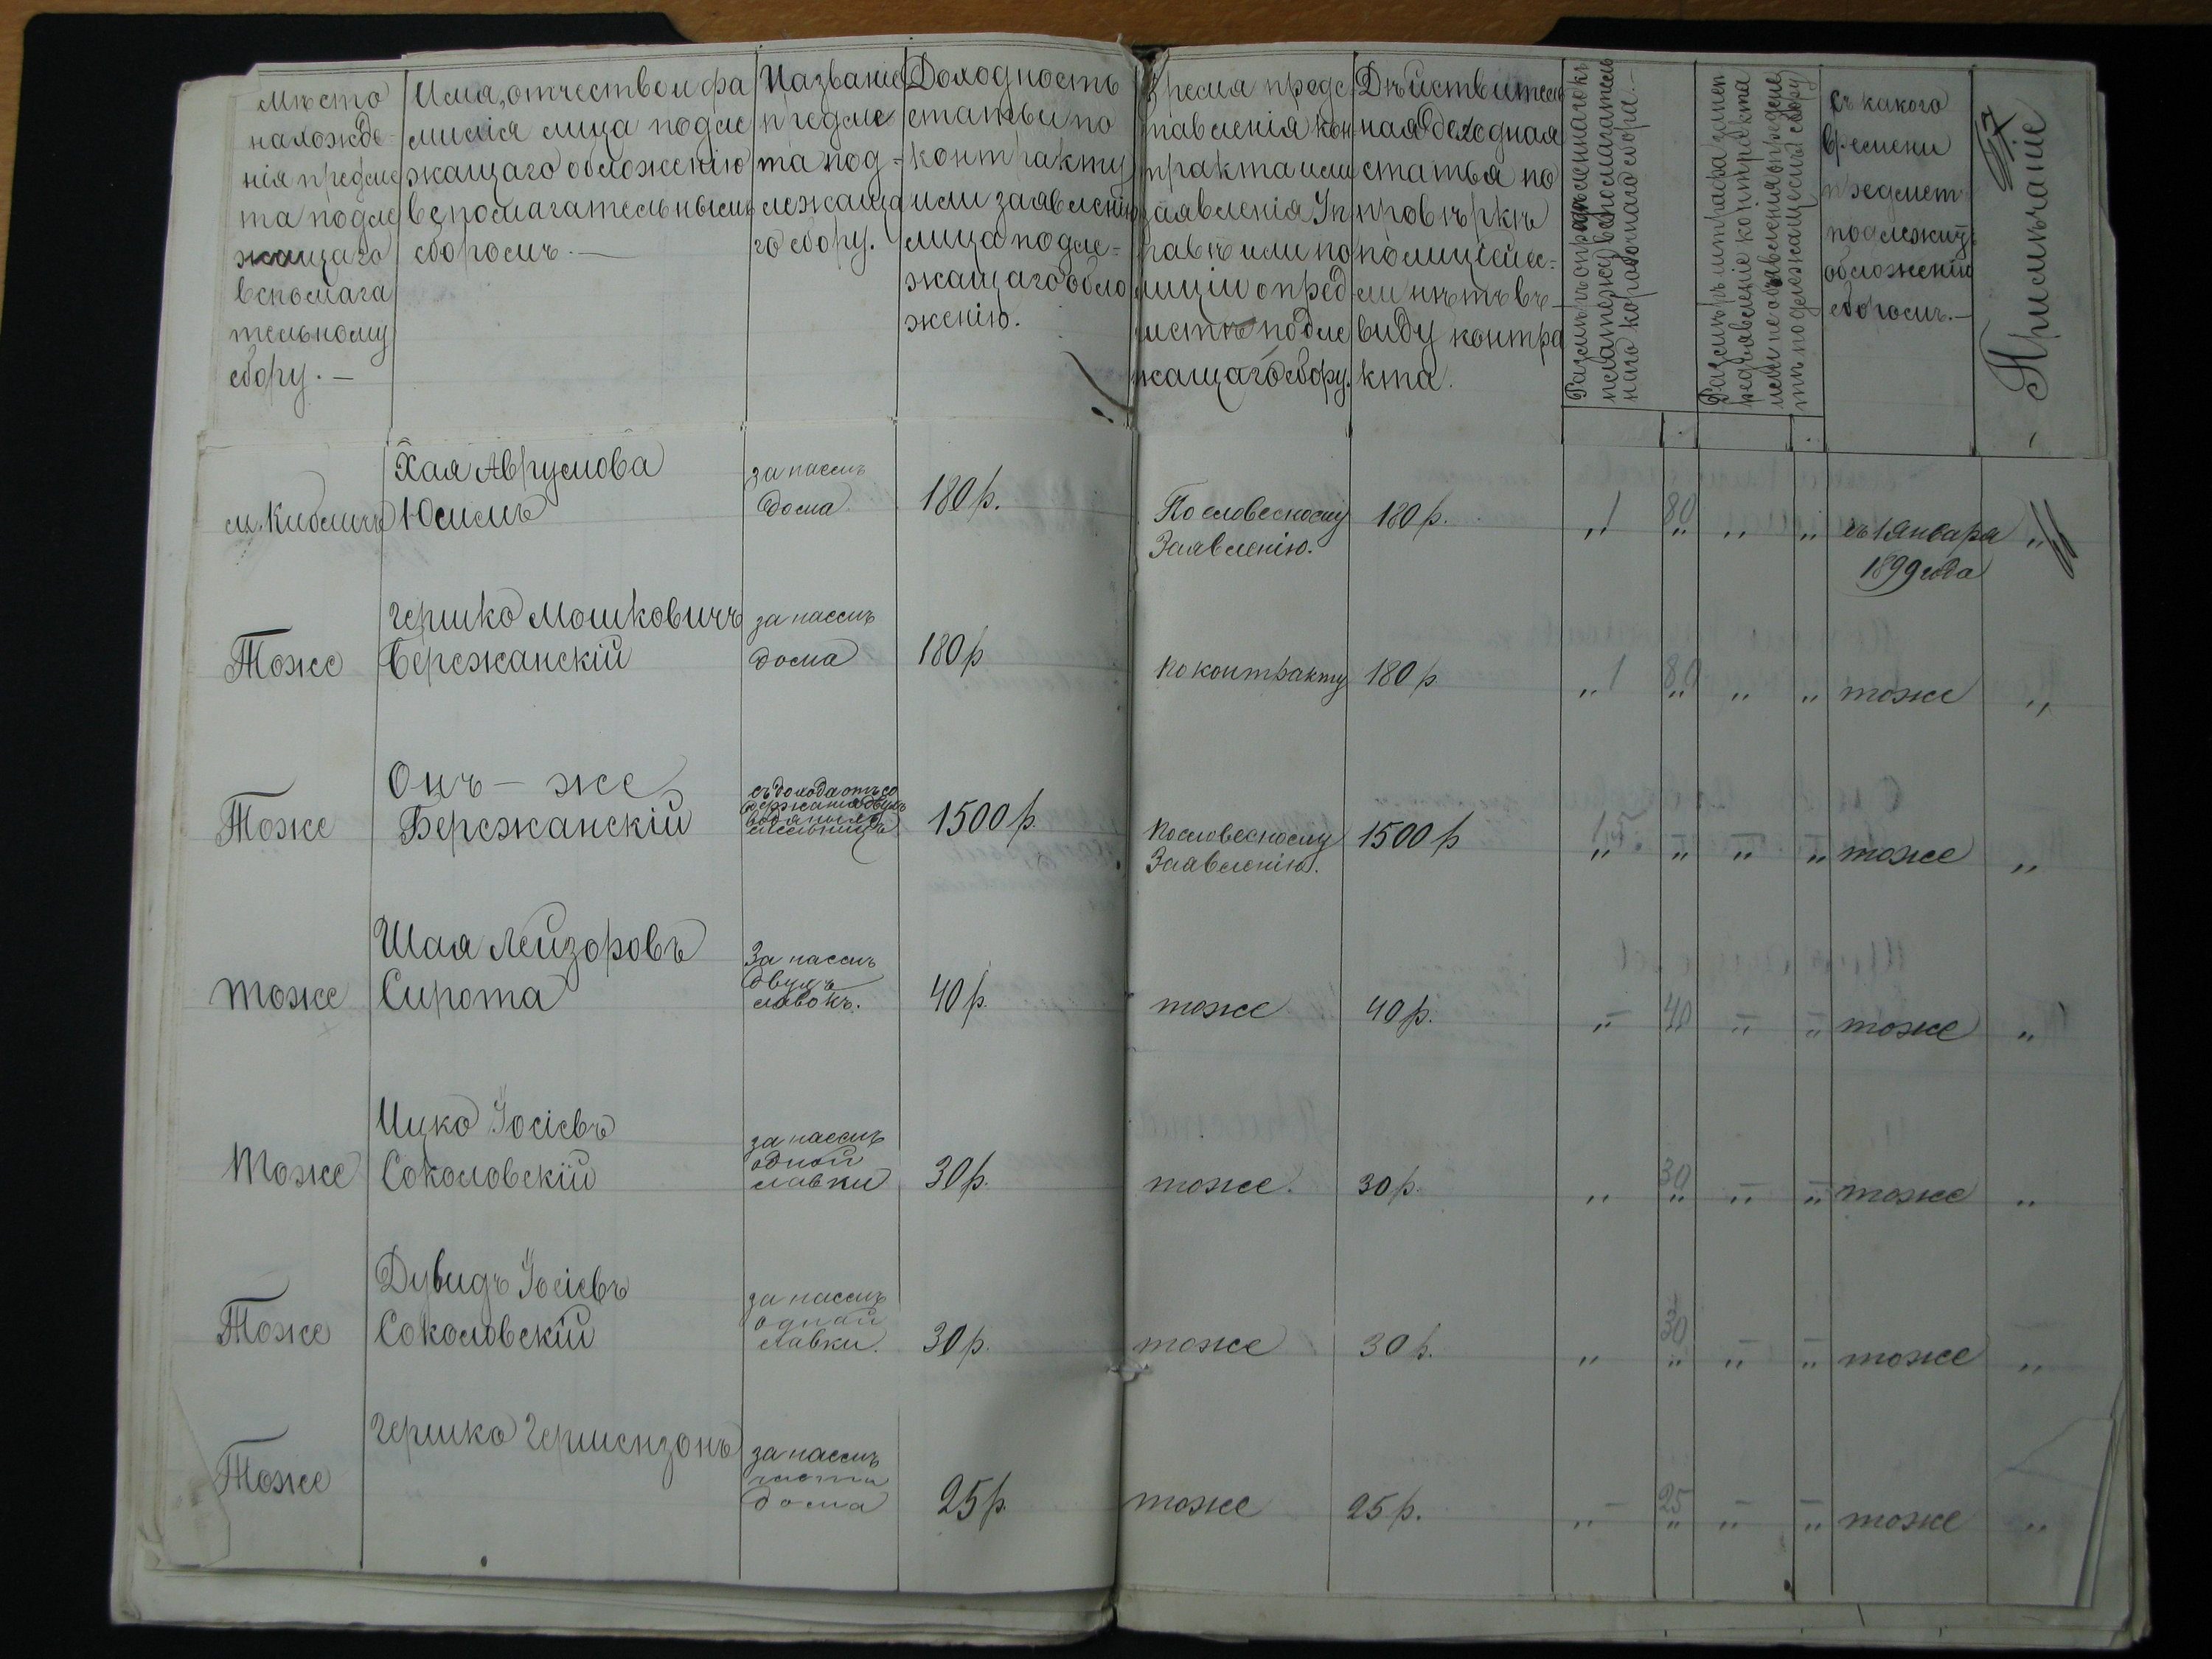 Мѣсто
нахожде-
нія предме
та подле
жащаго
вспомага
тельному
сбору.—
Имя, отчество и фа
милія лица подле
жащаго обложенію
вспомагательнымъ
сборомъ.—
Названіе
предме
та под-
лежаща
го сбору.
Доходность
статьи по
контракту
или заявленію
лица подле-
жащаго обло
женію.
Время предс
тавленія кон-
тракта или
заявленія Уп
равѣ или по
лиціи о пред
метѣ подле
жащаго сбору.
Дѣйствитель
ная доходная
статья по
провѣркѣ
полиціей е-
сли нѣтъ въ
виду контра
кта.
Размѣръ опредѣленнаго къ
платежу вспомагатель
наго коробочнаго сбора.—
Размѣръ штрафа за неп
редъявленіе контракта
или не объявленія о предме
тѣ подлежащаго сбору
съ какого
времени
предметъ
подлежитъ
обложенію
сборомъ.—
- Примѣчаніе
м. Кибличъ
Хая Аврумова
Юсимъ
за наемъ
дома
180 р.
По словесному
Заявленію.
180 р.
" 1
80
"
"
"
съ 1 Января
1899 года
"
Тоже
Гершко Мошковичъ
Бережанскій
за наемъ
дома
180 р
по контракту
180 р
" 1
80
"
"
"
тоже
"
Тоже
Онъ – же
Бережанскій
съ дохода отъ со
держанія двухъ
водяныхъ
мельницъ
1500 р.
По словесному
Заявленію.
1500 р
"
"
"
"
тоже
"
тоже
Шая Лейзоровъ
Сирота
За наемъ
двухъ
лавокъ.
40 р.
тоже
40 р.
"
40
"
"
тоже
"
Тоже
Ицко Іосіевъ
Соколовскій
за наемъ
одной
лавки
30 р.
тоже.
30 р.
"
30
"
"
"
тоже
"
Тоже
Дувидъ Іосіевъ
Соколовскій
за наемъ
одной
лавки.
30 р.
тоже
30 р.
"
30
"
"
"
тоже
"
Тоже
Гершко Гершензонъ
за наемъ
части
дома
25 р.
тоже
25 р.
"
25
"
"
"
тоже
"